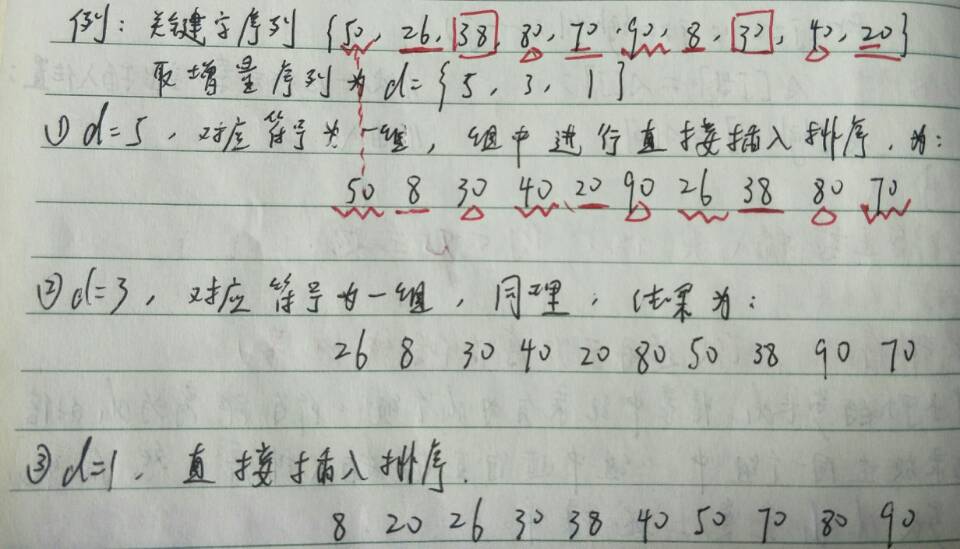 例：关键字序列 {50, 26, 38, 80, 70, 90, 8, 30, 40, 20}
取增量序列为 d={5, 3, 1}
① d=5，对应符号为一组，组中进行直接插入排序，为：
50 8 30 40 20 90 26 38 80 70
② d=3，对应符号为一组，同理，结果为：
26 8 30 40 20 80 50 38 90 70
③ d=1，直接插入排序.
8 20 26 30 38 40 50 70 80 90